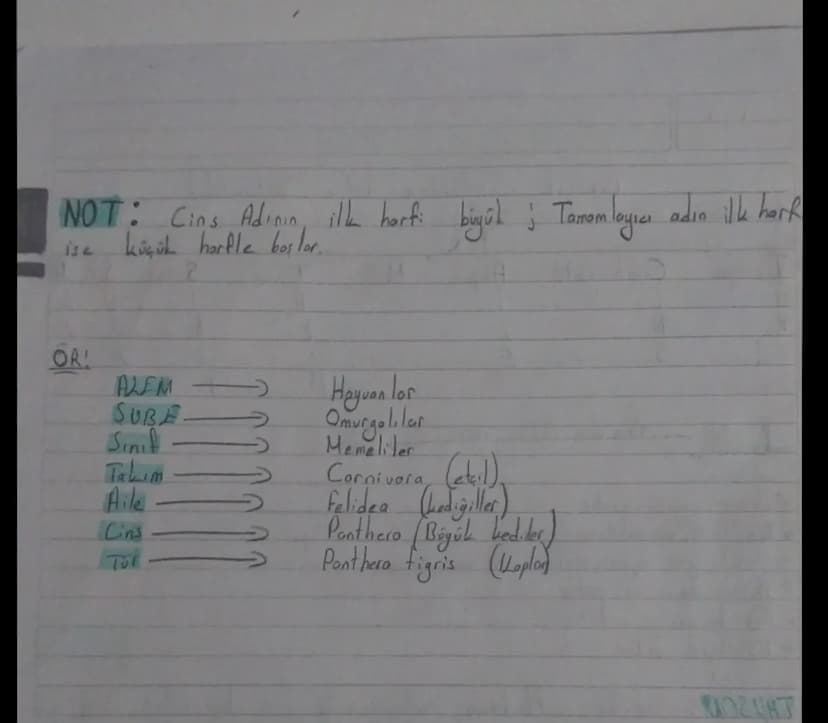 NOT: Cins Adının ilk harfi büyük ; Tamamlayıcı adın ilk harf
ise küçük harfle başlar.
ÖR!
ALEM → Hayvanlar
ŞUBE → Omurgalılar
Sınıf → Memeliler
Takım → Carnivora (etçil)
Aile → Felidea (kedigiller)
Cins → Panthera (Büyük kediler)
Tür → Panthera tigris (Kaplan)